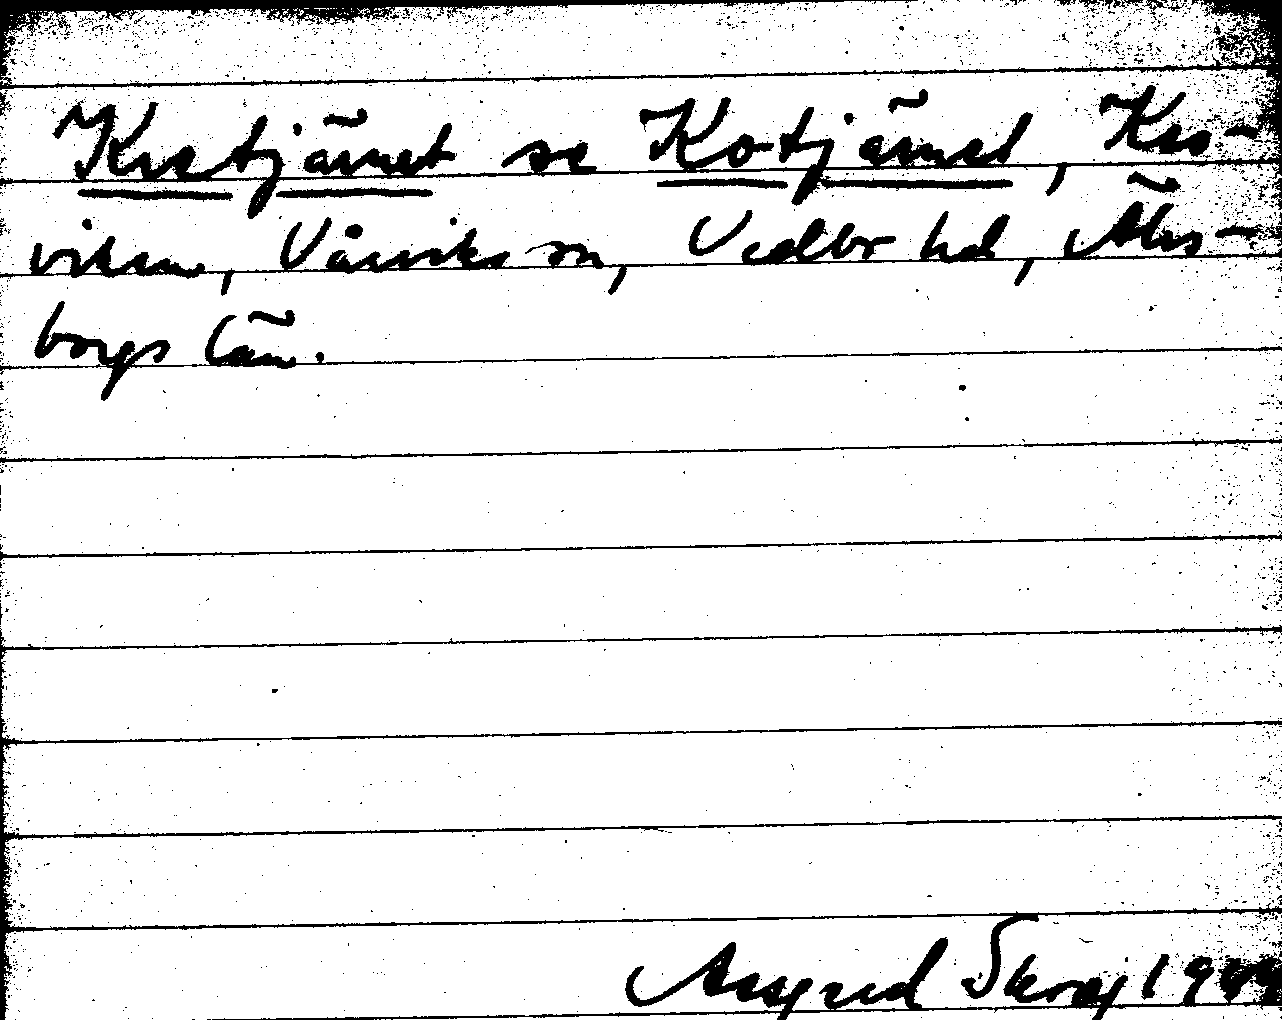 Kretjärnet se Kotjärnet, Kro-
viken, Vårviks sn, Vedbo hd, Älvs-
borgs län.
Assgerd Skrag 1944